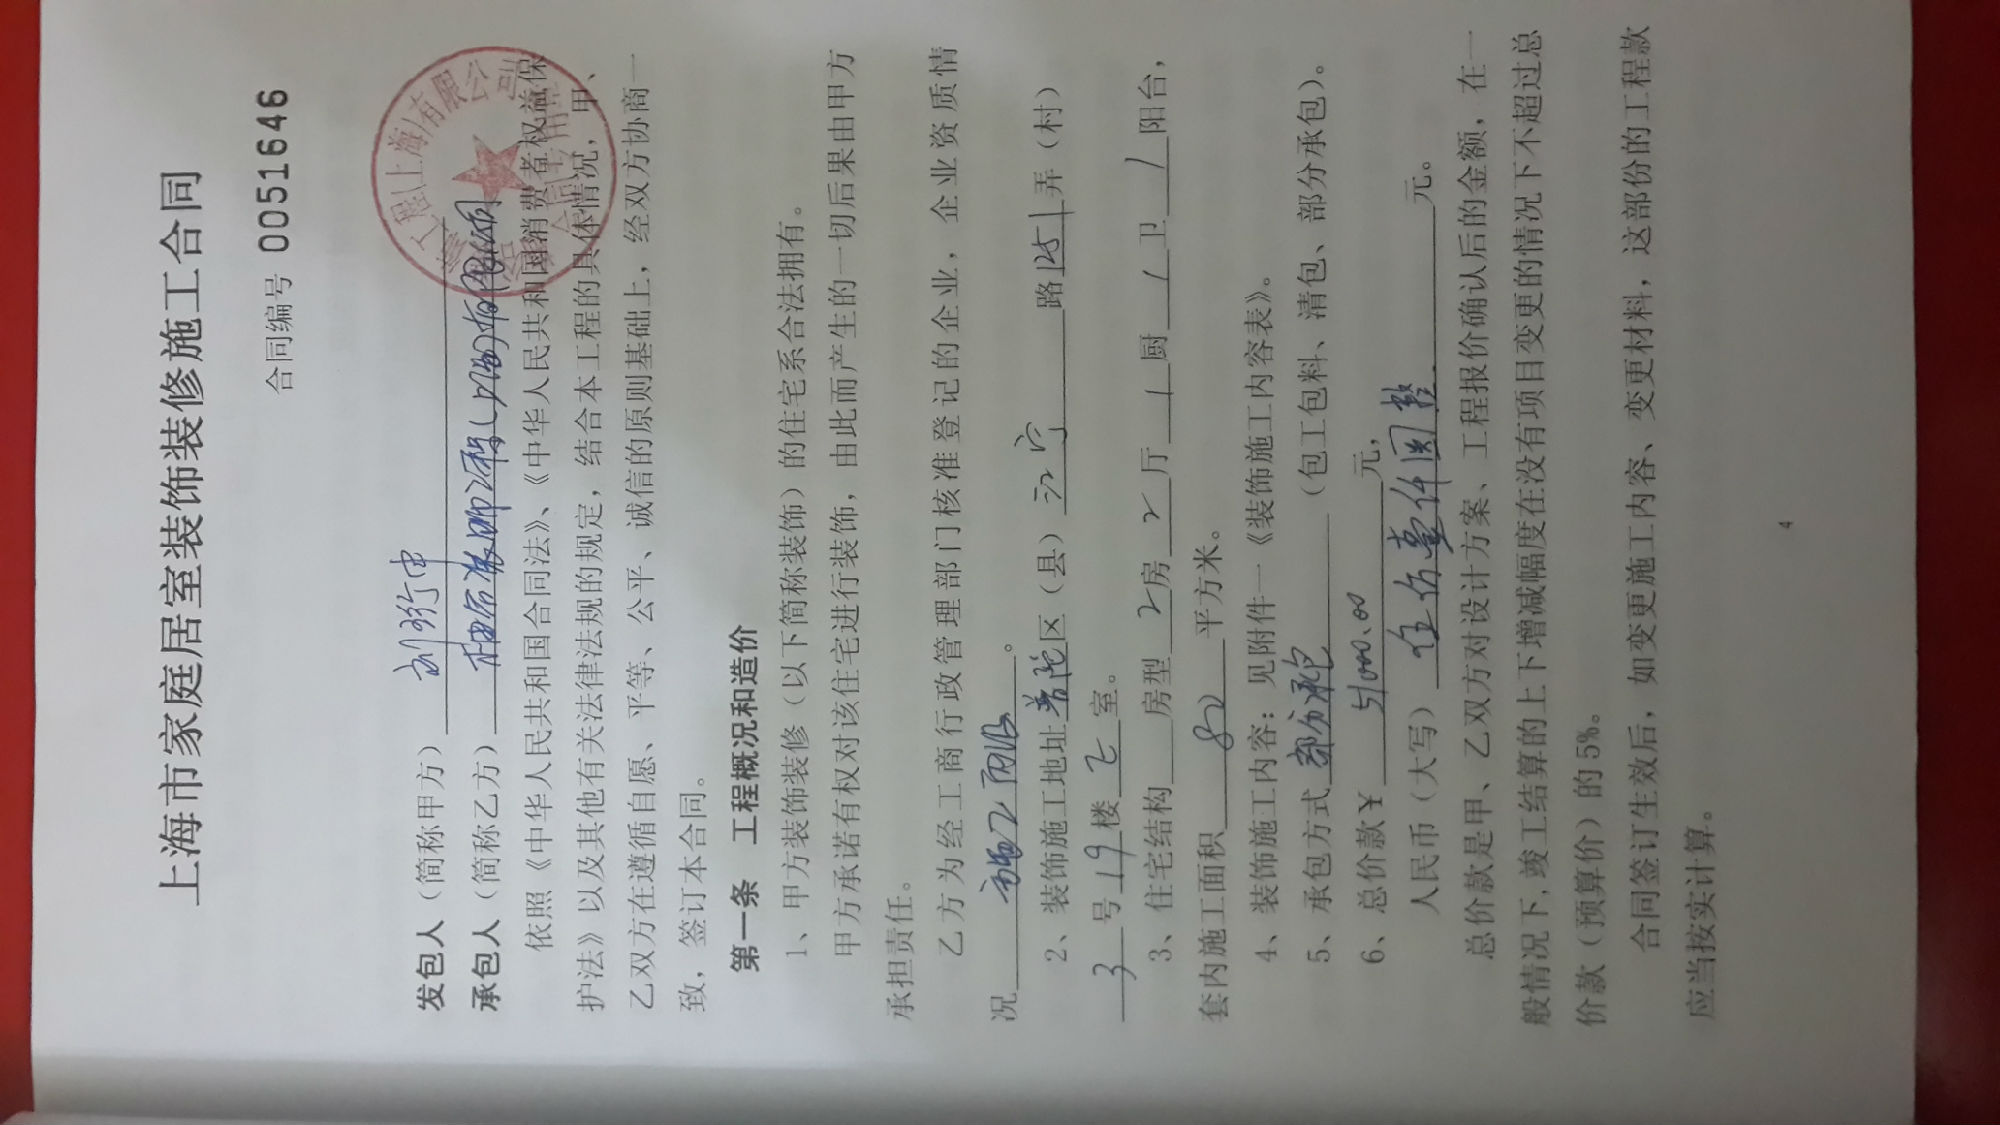 上海市家庭居室装饰装修施工合同
合同编号 0051646
发包人（简称甲方）
承包人（简称乙方） (上海)有限公司
依照《中华人民共和国合同法》、《中华人民共和国消费者权益保
护法》以及其他有关法律法规的规定，结合本工程的具体情况，甲、
乙双方在遵循自愿、平等、公平、诚信的原则基础上，经双方协商一
致，签订本合同。
第一条 工程概况和造价
1、甲方装饰装修（以下简称装饰）的住宅系合法拥有。
甲方承诺有权对该住宅进行装饰，由此而产生的一切后果由甲方
承担责任。
乙方为经工商行政管理部门核准登记的企业，企业资质情
况。
2、装饰施工地址普陀区（县）江宁路1251弄（村）
3号19楼室。
3、住宅结构 房型2房2厅1厨1卫1阳台，
套内施工面积82平方米。
4、装饰施工内容：见附件一《装饰施工内容表》。
5、承包方式部分承包（包工包料、清包、部分承包）。
6、总价款￥51000.00元，
人民币（大写）伍万壹仟圆整元。
总价款是甲、乙双方对设计方案、工程报价确认后的金额，在一
般情况下，竣工结算的上下增减幅度在没有项目变更的情况下不超过总
价款（预算价）的5%。
合同签订生效后，如变更施工内容、变更材料，这部份的工程款
应当按实计算。
4